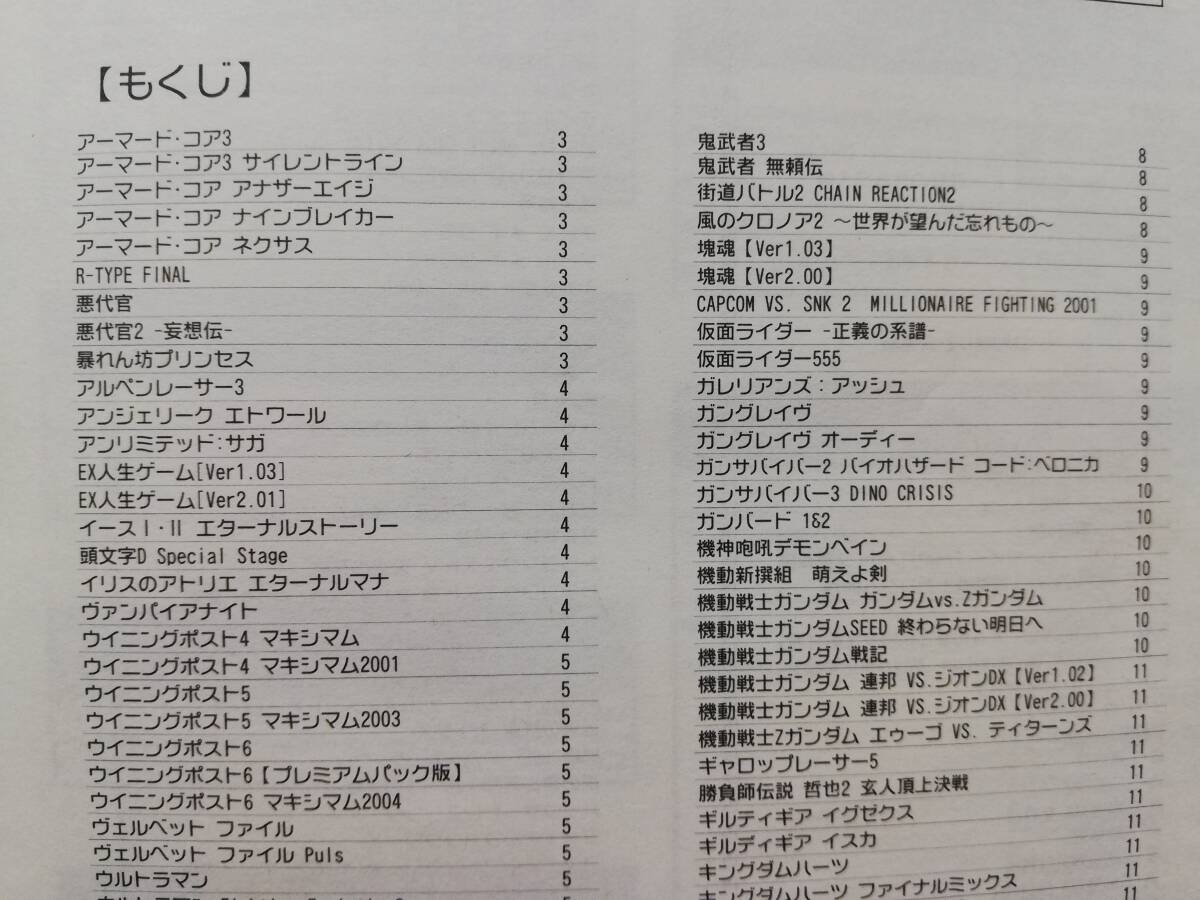 【もくじ】
アーマード・コア3 3
アーマード・コア3 サイレントライン 3
アーマード・コア アナザーエイジ 3
アーマード・コア ナインブレイカー 3
アーマード・コア ネクサス 3
R-TYPE FINAL 3
悪代官 3
悪代官2 -妄想伝- 3
暴れん坊プリンセス 3
アルペンレーサー3 4
アンジェリーク エトワール 4
アンリミテッド:サガ 4
EX人生ゲーム[Ver1.03] 4
EX人生ゲーム[Ver2.01] 4
イースⅠ・Ⅱ エターナルストーリー 4
頭文字D Special Stage 4
イリスのアトリエ エターナルマナ 4
ヴァンパイアナイト 4
ウイニングポスト4 マキシマム 4
ウイニングポスト4 マキシマム2001 5
ウイニングポスト5 5
ウイニングポスト5 マキシマム2003 5
ウイニングポスト6 5
ウイニングポスト6【プレミアムパック版】 5
ウイニングポスト6 マキシマム2004 5
ヴェルベット ファイル 5
ヴェルベット ファイル Puls 5
ウルトラマン 5
鬼武者3 8
鬼武者 無頼伝 8
街道バトル2 CHAIN REACTION2 8
風のクロノア2 ～世界が望んだ忘れもの～ 8
塊魂【Ver1.03】 9
塊魂【Ver2.00】 9
CAPCOM VS. SNK 2 MILLIONAIRE FIGHTING 2001 9
仮面ライダー -正義の系譜- 9
仮面ライダー555 9
ガレリアンズ：アッシュ 9
ガングレイヴ 9
ガングレイヴ オーディー 9
ガンサバイバー2 バイオハザード コード:ベロニカ 9
ガンサバイバー3 DINO CRISIS 10
ガンバード 1&2 10
機神咆吼デモンベイン 10
機動新撰組 萌えよ剣 10
機動戦士ガンダム ガンダムvs.Zガンダム 10
機動戦士ガンダムSEED 終わらない明日へ 10
機動戦士ガンダム戦記 10
機動戦士ガンダム 連邦 VS.ジオンDX【Ver1.02】 11
機動戦士ガンダム 連邦 VS.ジオンDX【Ver2.00】 11
機動戦士Zガンダム エゥーゴ VS. ティターンズ 11
ギャロップレーサー5 11
勝負師伝説 哲也2 玄人頂上決戦 11
ギルティギア イグゼクス 11
ギルディギア イスカ 11
キングダムハーツ 11
キングダムハーツ ファイナルミックス 11